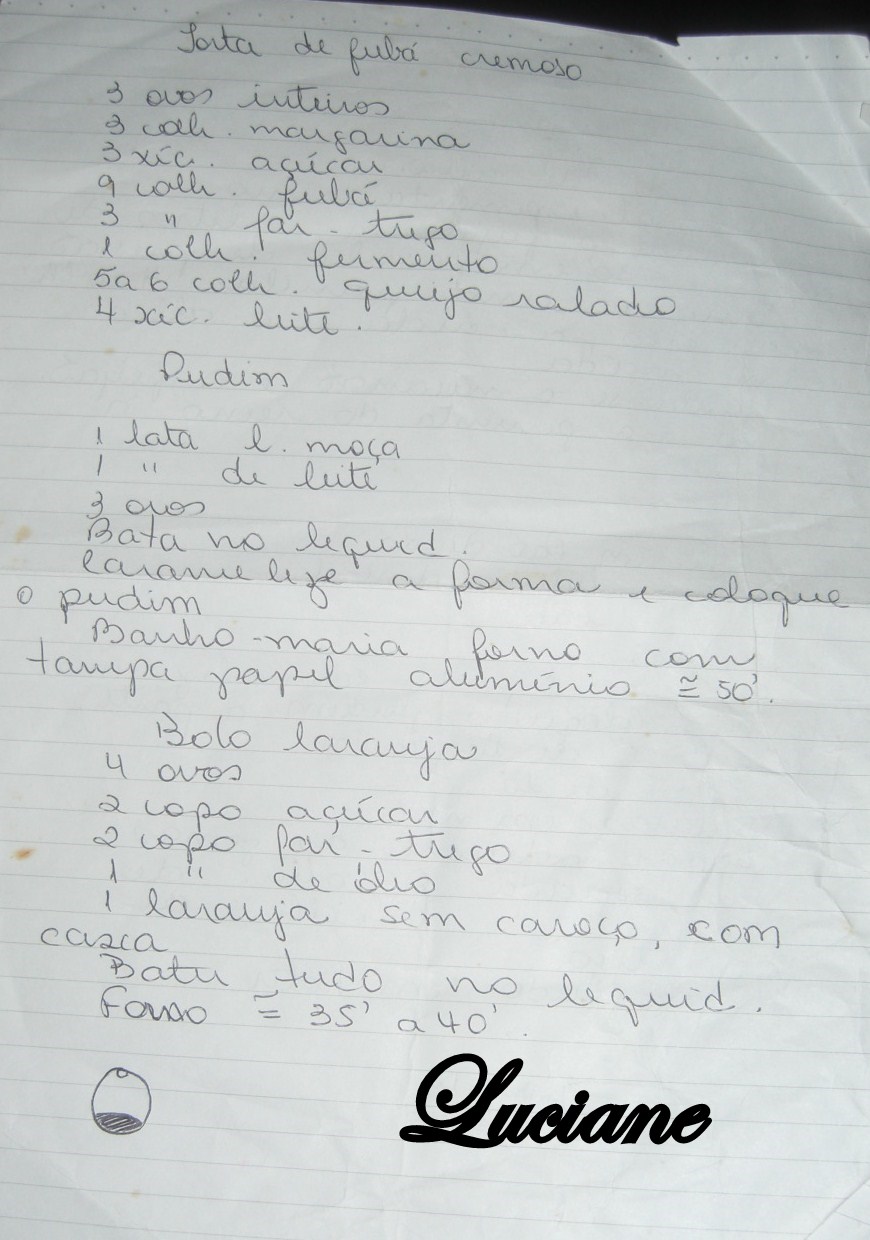 Torta de fubá cremoso
3 ovos inteiros
3 colh. margarina
3 xíc. açúcar
9 colh. fubá
3 " far. trigo
1 colh. fermento
5 a 6 colh. queijo ralado
4 xíc. leite.
Pudim
1 lata l. moça
1 " de leite
3 ovos
Bata no liquid.
Caramelize a forma e coloque
o pudim
Banho-maria forno com
tampa papel alumínio ≅ 50'.
Bolo laranja
4 ovos
2 copo açúcar
2 copo far. trigo
1 " de óleo
1 laranja sem caroço, com
casca
Bater tudo no liquid.
Forno ≅ 35' a 40'.
Luciane